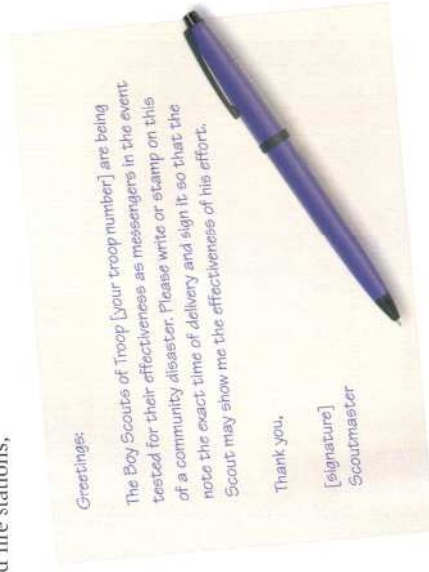 d fire stations,
Greetings:
The Boy Scouts of Troop [your troop number] are being
tested for their effectiveness as messengers in the event
of a community disaster. Please write or stamp on this
note the exact time of delivery and sign it so that the
Scout may show me the effectiveness of his effort.
Thank you,
[signature]
Scoutmaster